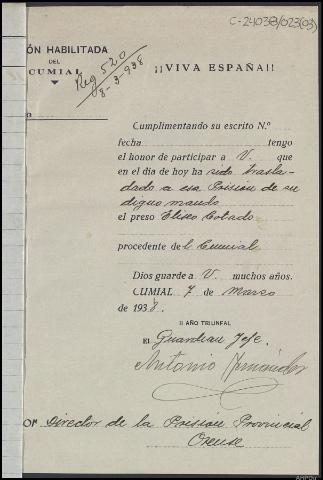 C-24038/023(03)
ÓN HABILITADA
DEL
CUMIAL
Reg 520
8-3-938
¡¡VIVA ESPAÑA!!
Cumplimentando su escrito N.º
fecha tengo
el honor de participar a V. que
en el día de hoy ha sido trasla-
dado a esa Prision de su
digno mando
el preso Eliseo Colado
procedente del Cumial
Dios guarde a V. muchos años.
CUMIAL 7 de Marzo
de 1938.
II AÑO TRIUNFAL
El Guardian Jefe.
Antonio
OR Director de la Prisión Provincial
Orense
AHPOu